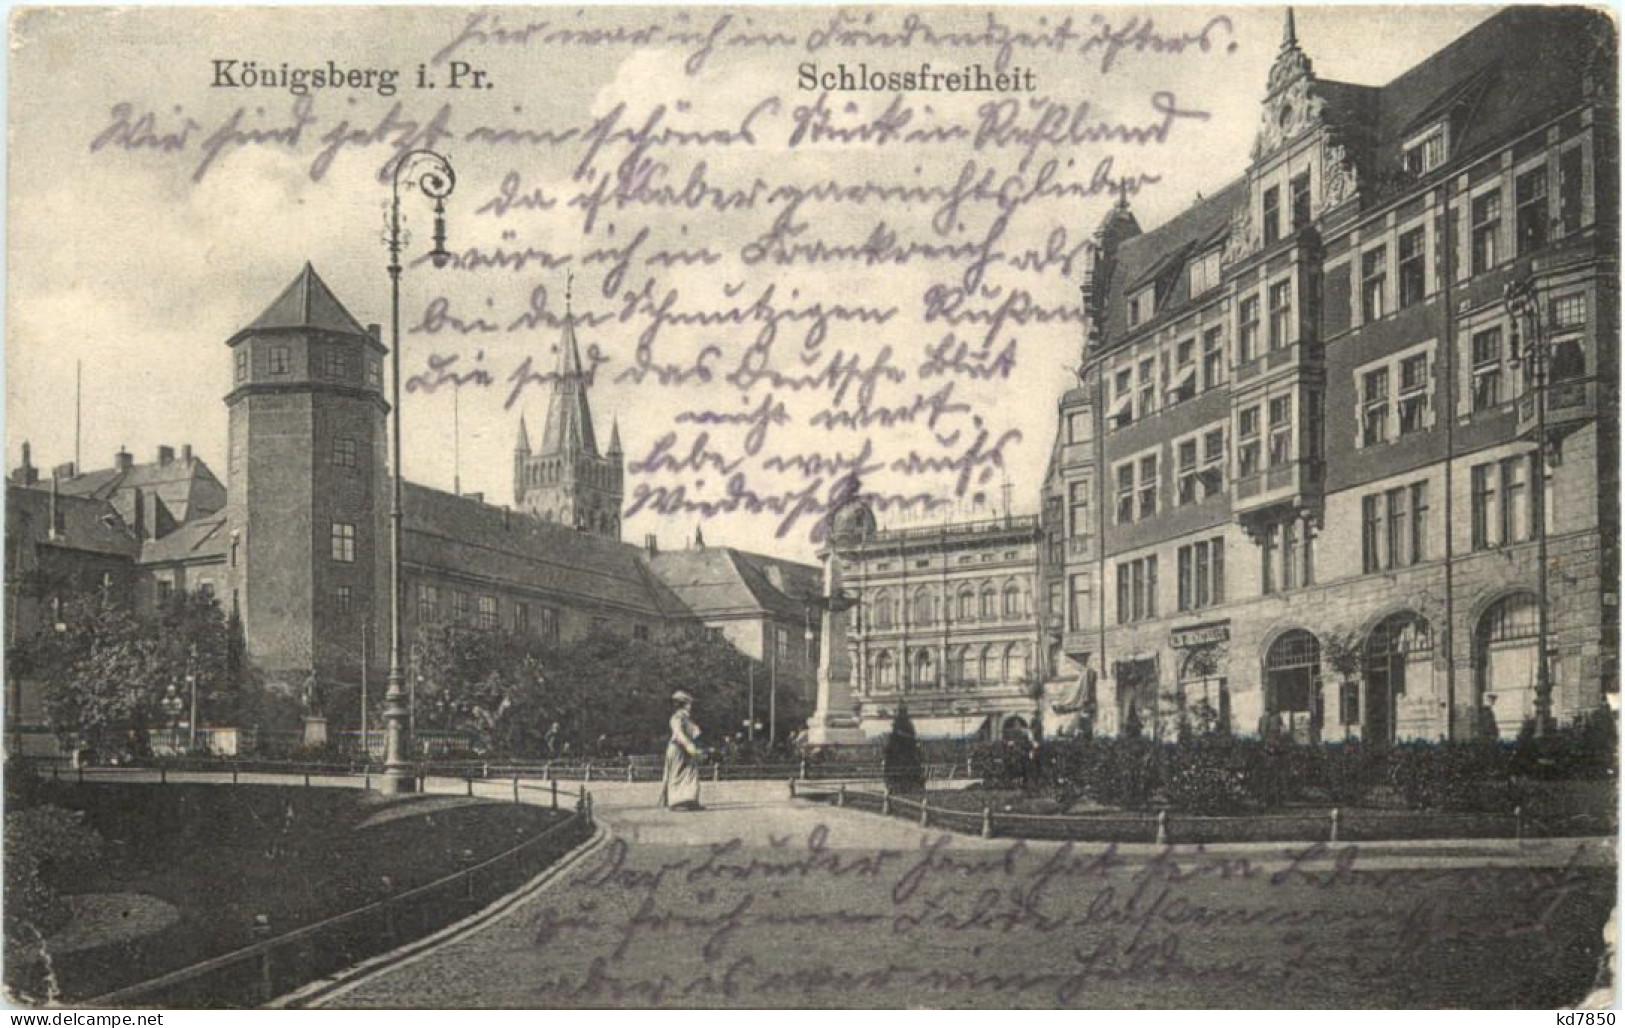 Hier war ich in Friedenszeit öfters.
Königsberg i. Pr. Schlossfreiheit
Wir sind jetzt ein schönes Stück in Rußland
da ist's aber garnichts lieber
wäre ich in Frankreich als
bei den Schmutzigen Rußen
Die sind das Deutsche Blut
nicht wert.
Lebe wol aufs
Wiedersehen
Der Bruder Hans hat sein Leben
zu früh im Felde laßen
aber es war ein Helden
kd7850